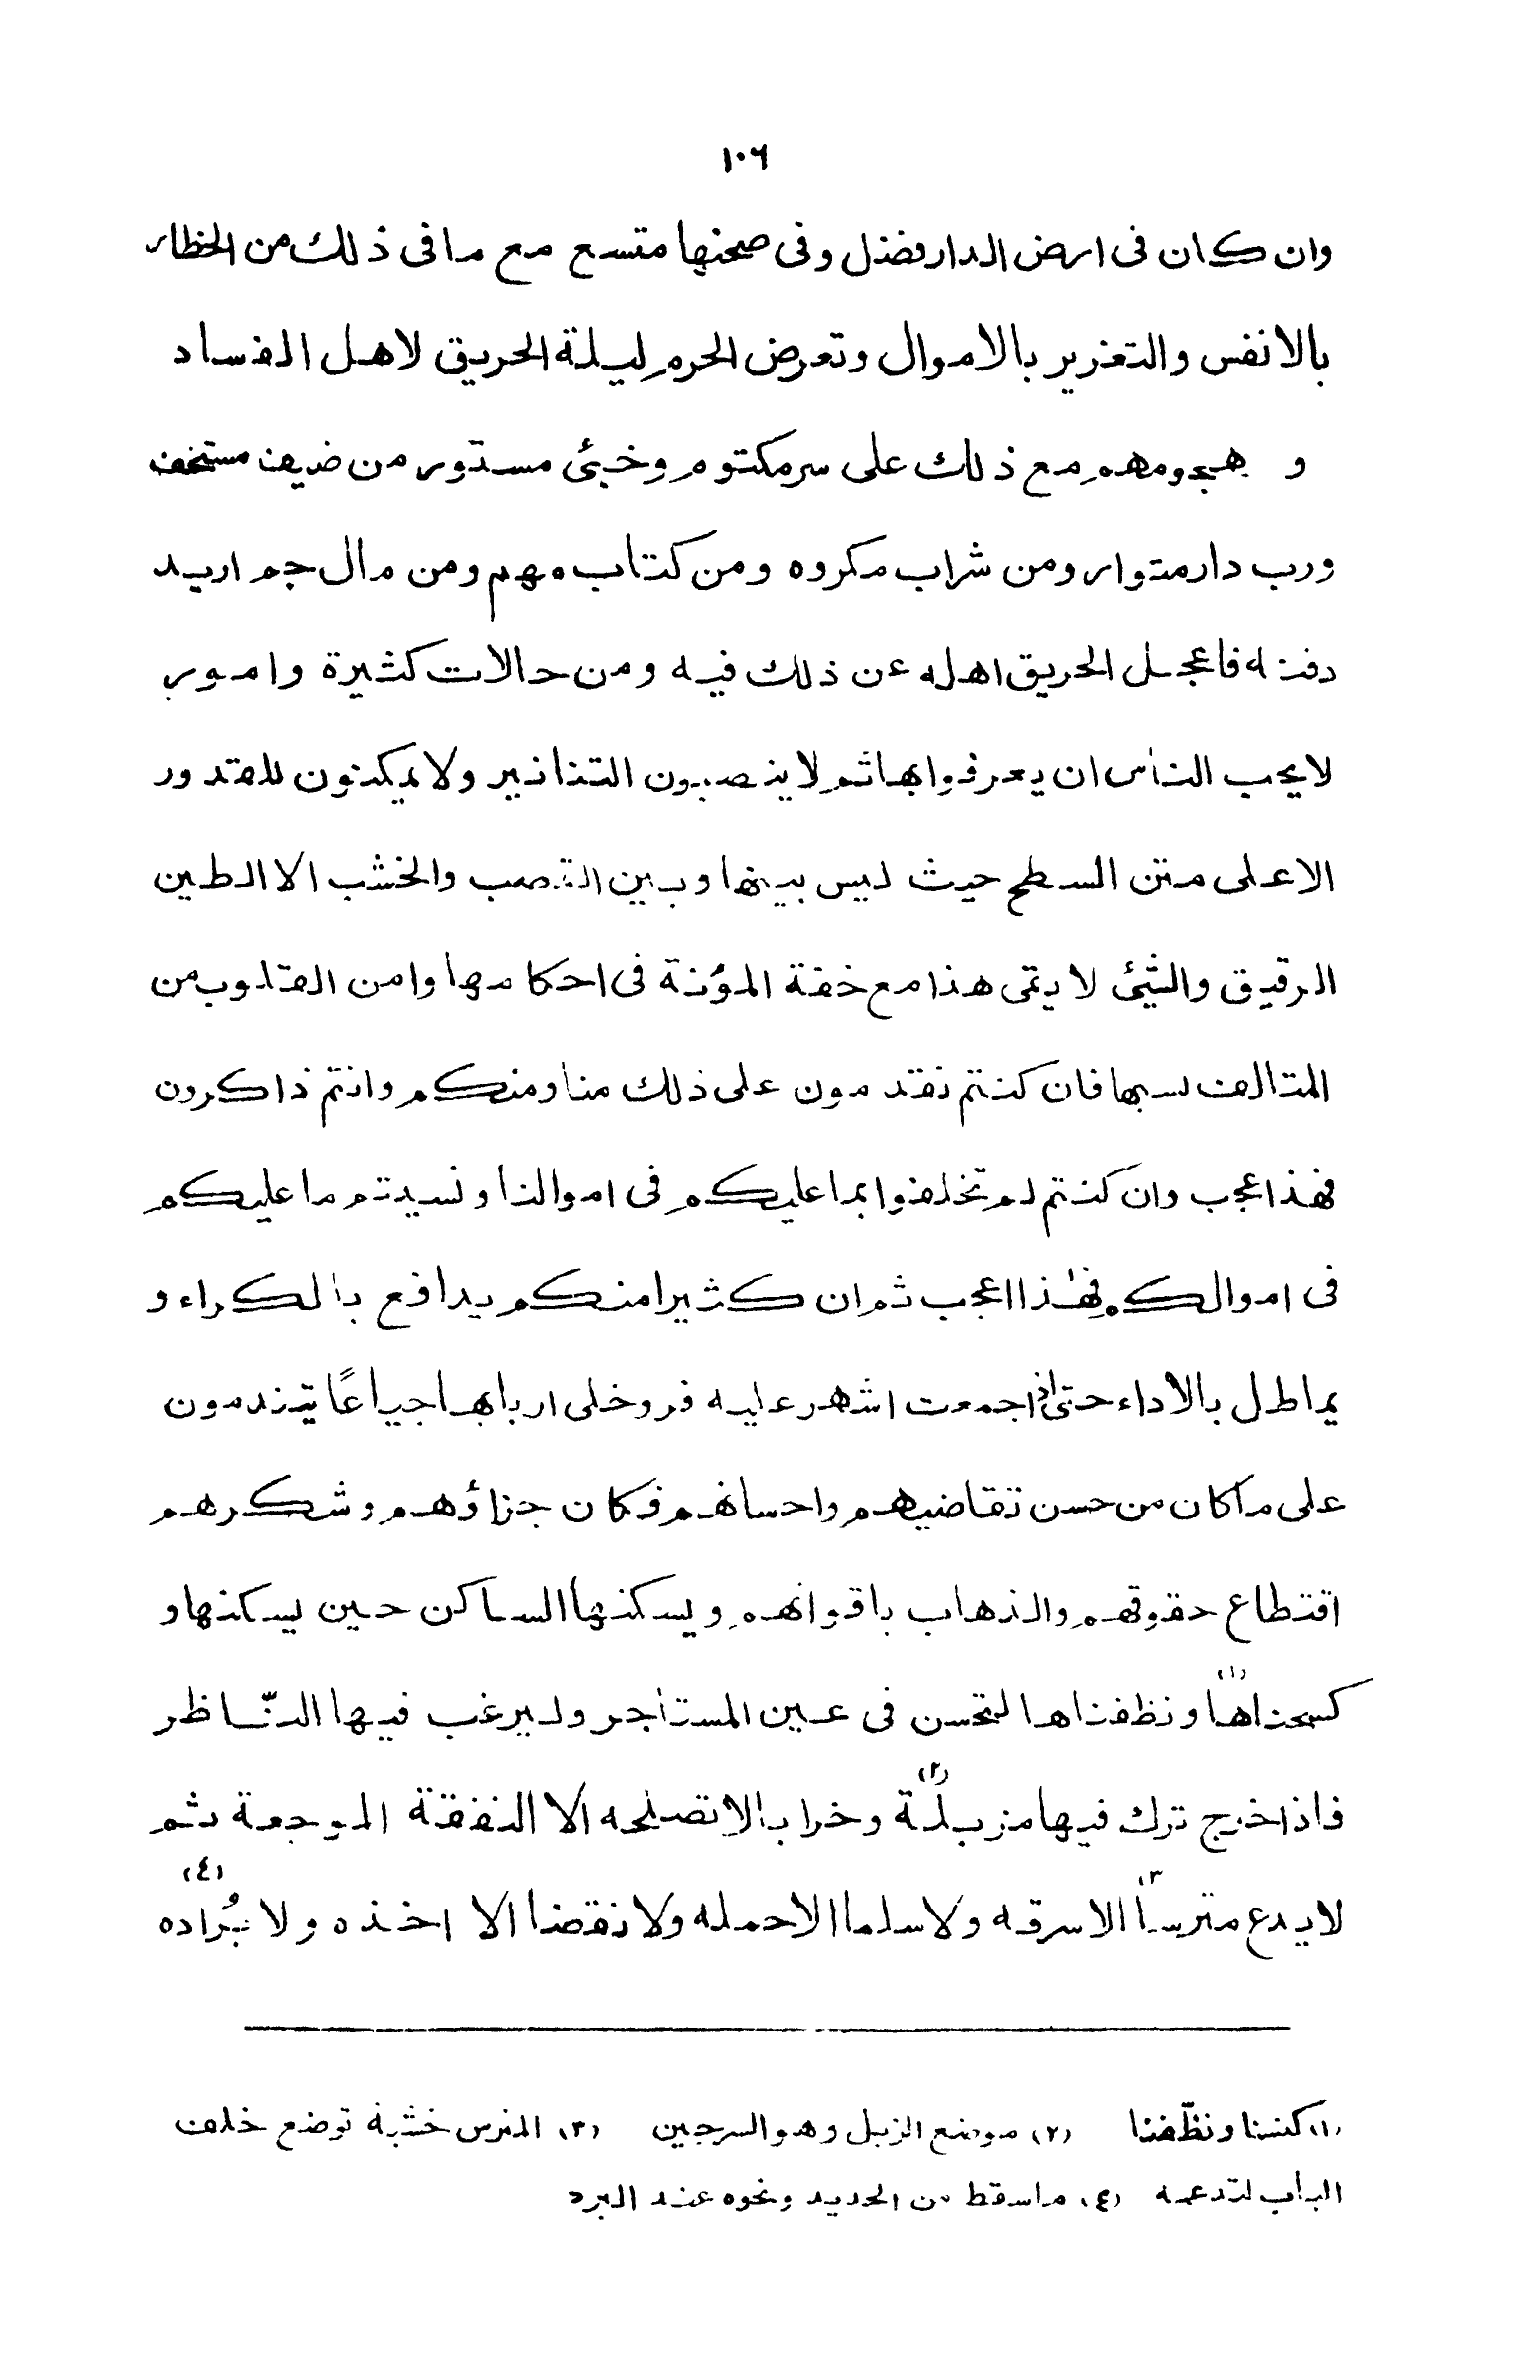 ١٠٦
وان كان فى ارض الدار فضل وفى صحنها متسع مع ما فى ذلك من الخطار
بالانفس والتغرير بالاموال وتعرض الحرم ليلة الحريق لاهل الفساد
و هجومهم مع ذلك على سر مكتوم وخبئ مستور من ضيف مستخف
ورب دار متوار ومن شراب مكروه ومن كتاب مهم ومن مال جم اريد
دفنه فاعجل الحريق اهله عن ذلك فيه ومن حالات كثيرة وامور
لا يحب الناس ان يعرفوا بها ثم لا ينصبون التنانير ولا يمكنون للقدور
الا على متن السطح حيث ليس بينها وبين القصب والخشب الا الطين
الرقيق والشيئ لا يقى هذا مع خفة المؤنة فى احكامها وامن القلوب من
المتالف بسببها فان كنتم تقدمون على ذلك منا ومنكم وانتم ذاكرون
فهذا عجب وان كنتم لم تحلفوا بما عليكم فى اموالنا ونسيتم ما عليكم
فى اموالكم فهذا اعجب ثم ان كثيرا منكم يدافع بالكراء و
يماطل بالاداء حتى اذا جمعت اشهر عليه فر وخلى اربابها جياعًا يتندمون
على ما كان من حسن تقاضيهم واحسانهم فكان جزاؤهم وشكرهم
اقتطاع حقوقهم والذهاب باقواتهم ويسكنها الساكن حين يسكنها و
كسحناها (١) ونظفناها لتحسن فى عين المستأجر وليرغب فيها النّاظر
فاذا خرج ترك فيها مزبلة (٢) وخرابا لا تصلحه الا النفقة الموجعة ثم
لا يدع مترسا (٣) الا سرقه ولا سلما الا حمله ولا نقضا الا اخذه ولا بُرادة (٤)
(١) كنسنا ونظّفنا (٢) موضع الزبل وهو السرجين (٣) المترس خشبة توضع خلف
الباب لتدعمه (٤) ما سقط من الحديد ونحوه عند البرد